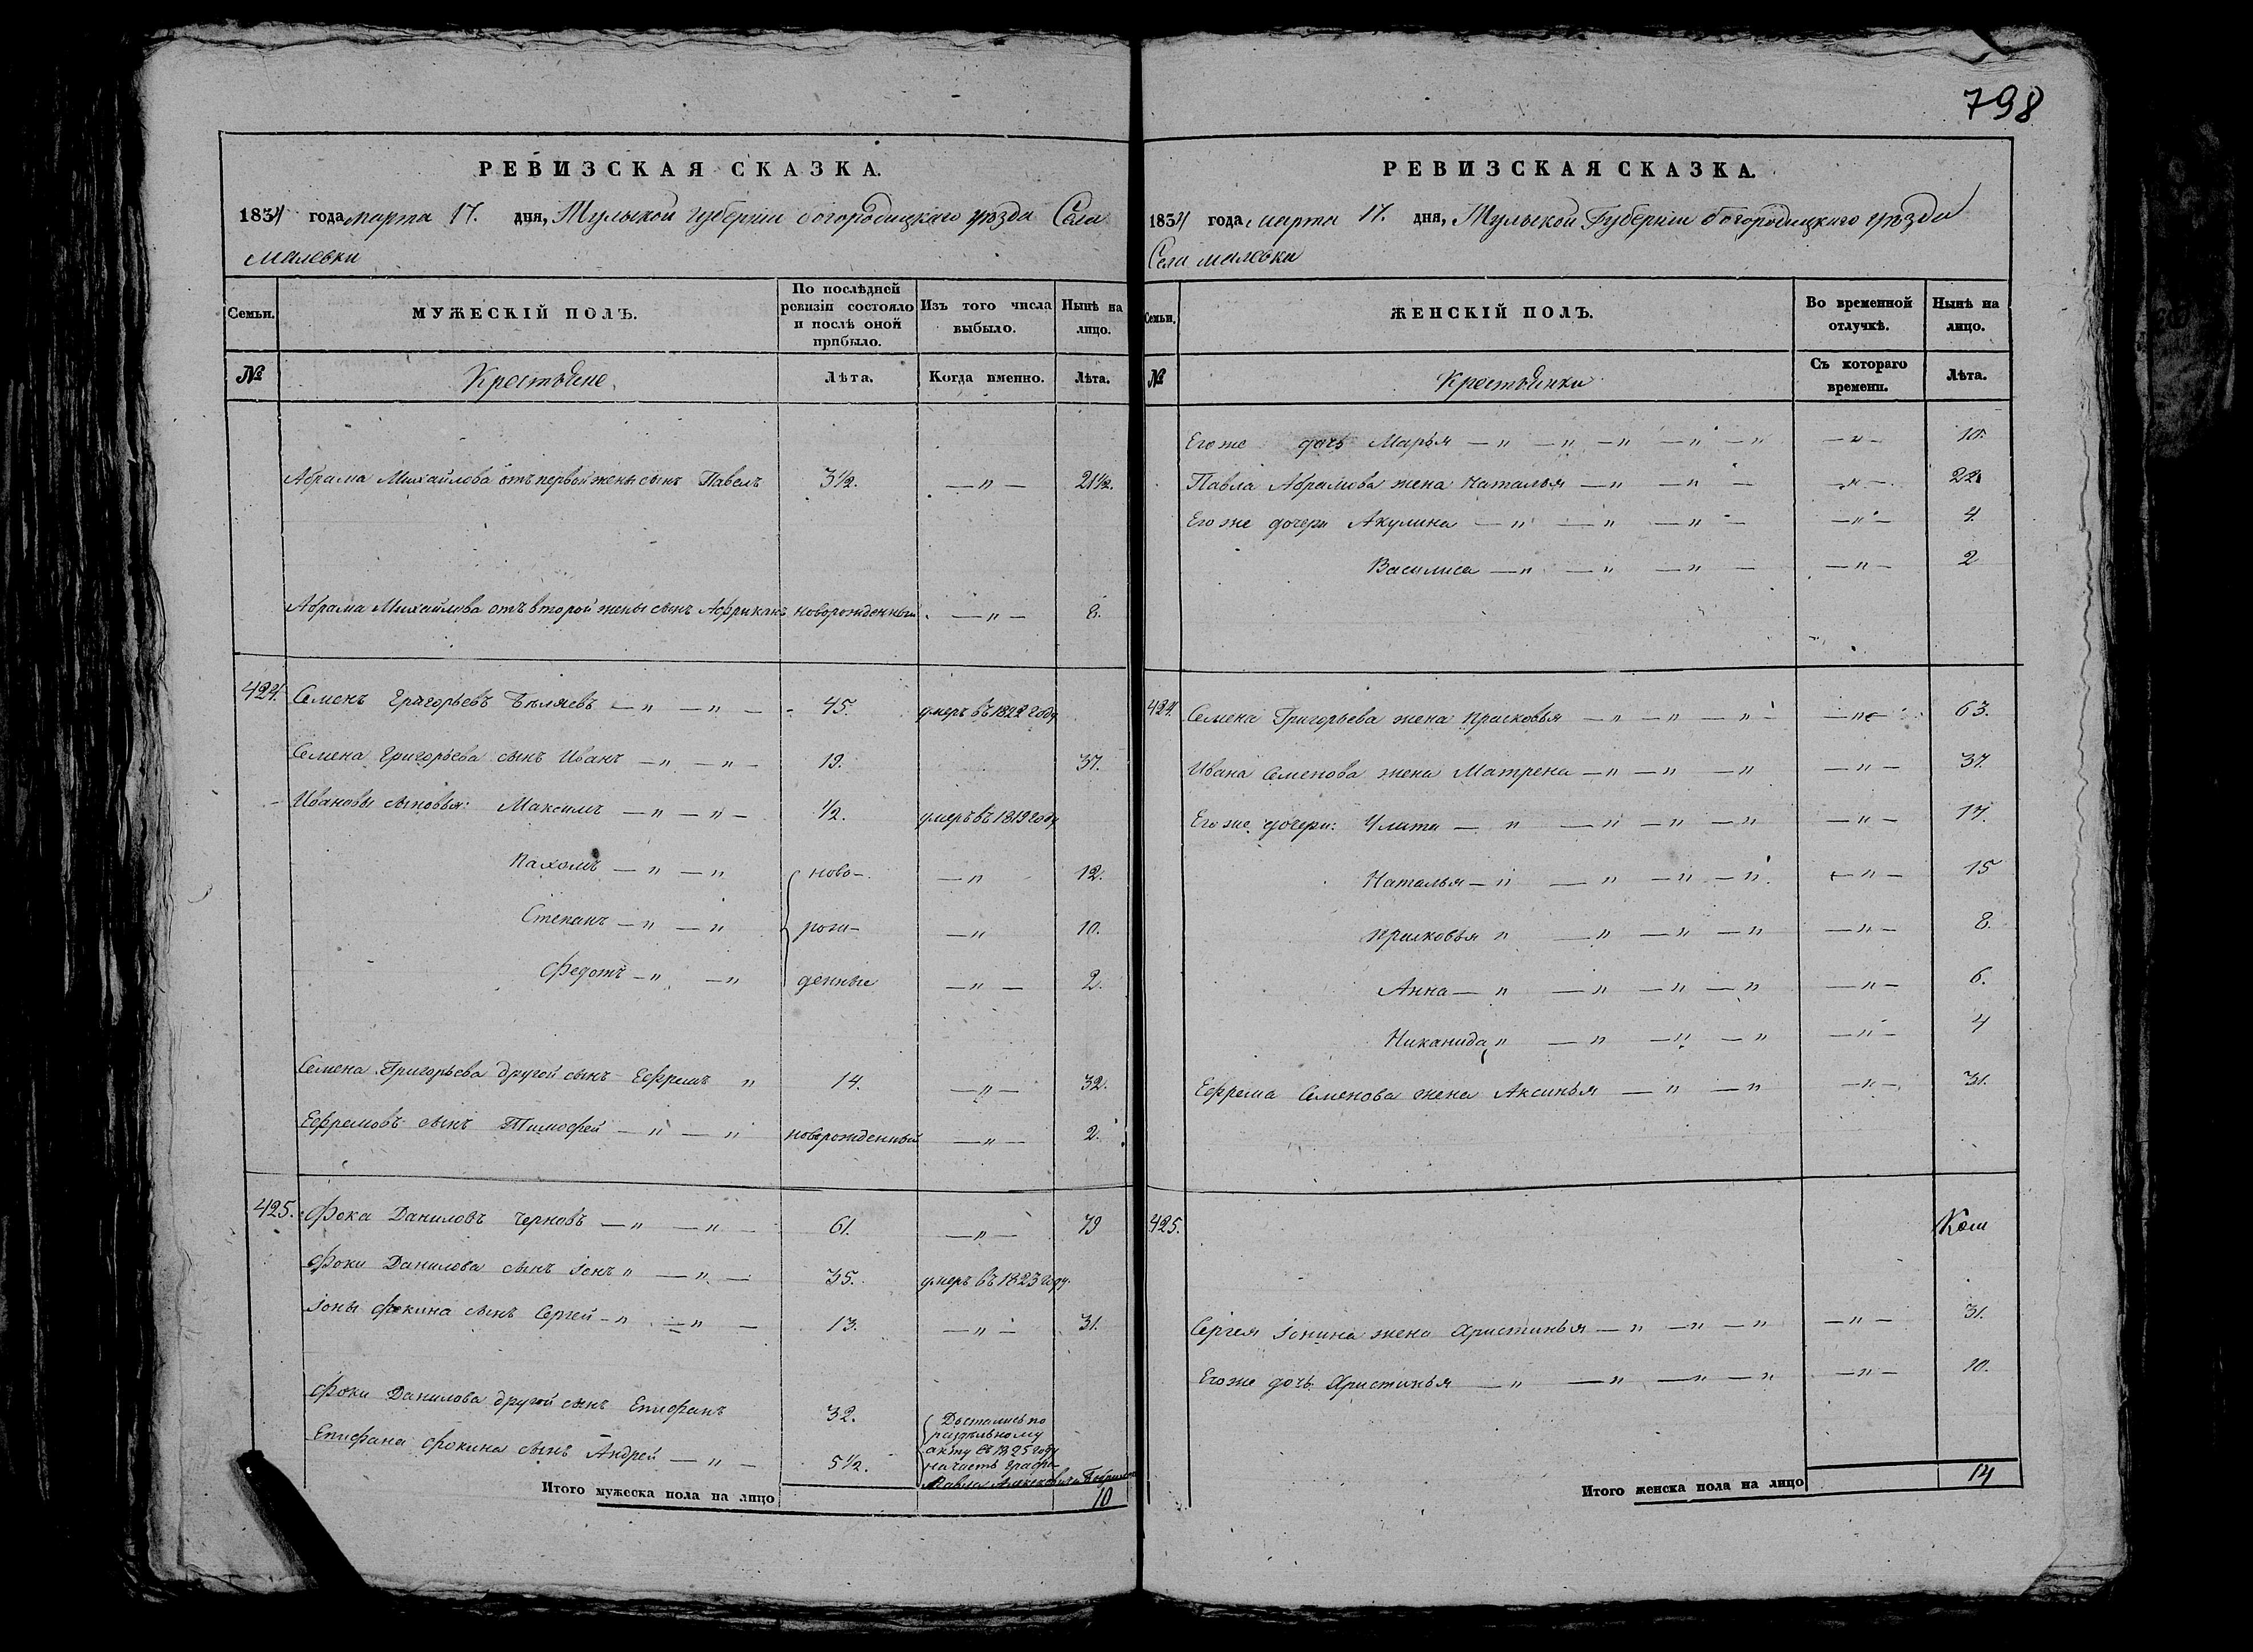 798
РЕВИЗСКАЯ СКАЗКА.
1834 года марта 17. дня, Тульской губернiи богородицкаго уѣзда Села
малевки
Семьи.
МУЖЕСКІЙ ПОЛЪ.
По послѣдней ревизіи состояло и послѣ оной прибыло.
Изъ того числа выбыло.
Нынѣ на лицо.
№ Крестьяне Лѣта. Когда именно. Лѣта.
Абрама Михайлова отъ первой жены сынъ Павелъ 3½. — " — 21½.
Абрама Михайлова отъ второй жены сынъ Африканъ новорожденный — " — 8.
424. Семенъ Григорьевъ Бѣляевъ — " — " — 45. умеръ въ 1822 году
Семена Григорьева сынъ Иванъ — " — " — 19. 37.
Ивановы сыновья: Максимъ — " — " — ½. умеръ въ 1819 году
Пахомъ — " — " ново- — " 12.
Степанъ — " — " рож- — " 10.
Федотъ — " — " денные — " — 2.
Семена Григорьева другой сынъ Ефремъ " 14. — " — 32.
Ефремовъ сынъ Тимофей — " — " новорожденный — " — 2.
425. Фока Даниловъ Черновъ — " — " — 61. — " — 79
Фоки Данилова сынъ Iонъ " — " — 35. умеръ въ 1823 году.
Iоны Фокина сынъ Сергей — " — " — 13. — " — 31.
Фоки Данилова другой сынъ Епифанъ 32.
Епифана Фокина сынъ Андрей — " — 5½.
Достались по
раздѣльному
акту въ 1825 году
на часть графа
Павла Алексѣевича
Итого мужеска пола на лицо 10
РЕВИЗСКАЯ СКАЗКА.
1834 года марта 17. дня, Тульской Губернiи богородицкаго уѣзда
Села малевки
Семьи.
ЖЕНСКІЙ ПОЛЪ.
Во временной отлучкѣ.
Нынѣ на лицо.
№ Крестьянки Съ котораго времени. Лѣта.
Его же дочь Марья — " — " — " — " — " — " — 10.
Павла Абрамова жена Наталья — " — " — — " — 22
Его же дочери Акулина — " — " — " — — " — 4.
Василиса — " — " — " — — " — 2
424. Семена Григорьева жена Прасковья — " — " — " — — " — 63.
Ивана Семенова жена Матрена — " — " — " — " — 37.
Его же дочери: Улита — " — " — " — " — " — 17.
Наталья — " — " — " — " — " — 15
Прасковья " — " — " — " — " — 8.
Анна — " — " — " — " — " — 6.
Никанида " — " — " — " — " — 4
Ефрема Семенова жена Аксинья — " — " — " — 31.
425.
Сергея Iонина жена Христинья — " — " — " — " — 31.
Его же дочь Христинья — " — " — " — " — " — 10.
Итого женска пола на лицо 14